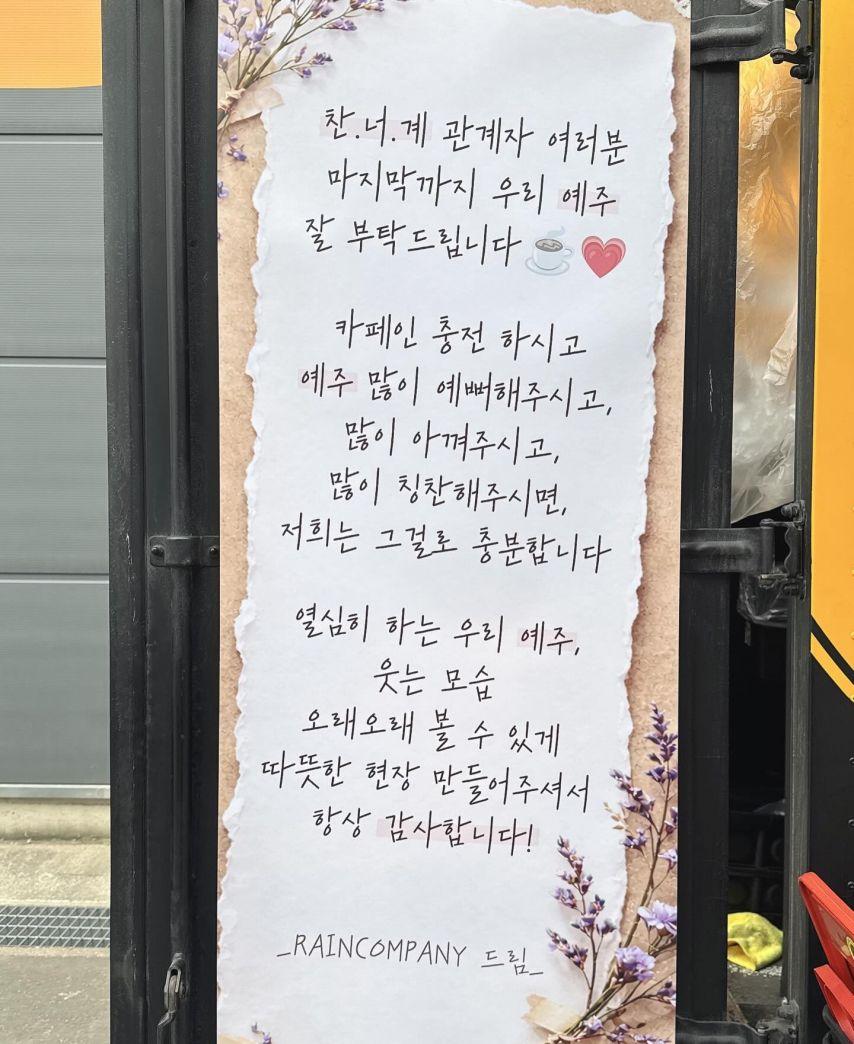 찬.너.계 관계자 여러분
마지막까지 우리 예주
잘 부탁드립니다
카페인 충전 하시고
예주 많이 예뻐해주시고,
많이 아껴주시고,
많이 칭찬해주시면,
저희는 그걸로 충분합니다
열심히 하는 우리 예주,
웃는 모습
오래오래 볼 수 있게
따뜻한 현장 만들어주셔서
항상 감사합니다!
_RAINCOMPANY 드림_